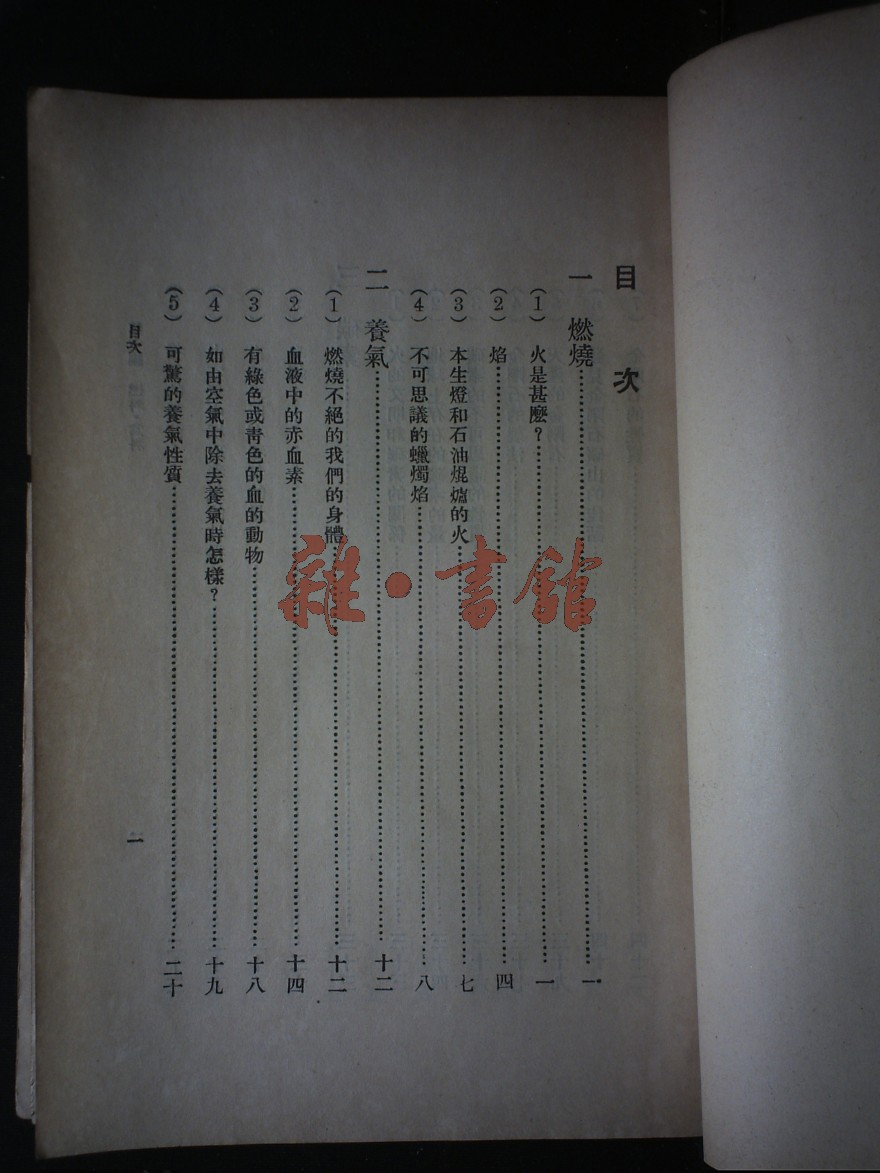 目次
一 燃燒……一
(1) 火是甚麼?……一
(2) 焰……四
(3) 本生燈和石油焜爐的火……七
(4) 不可思議的蠟燭焰……八
二 養氣……十二
(1) 燃燒不絕的我們的身體……十二
(2) 血液中的赤血素……十四
(3) 有綠色或靑色的血的動物……十八
(4) 如由空氣中除去養氣時怎樣?……十九
(5) 可驚的養氣性質……二十
目次
一
雜·書館